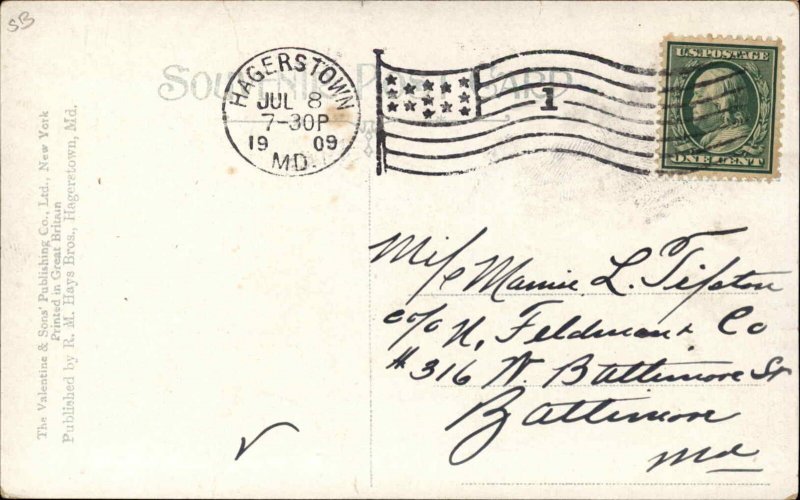 SB
SOUVENIR POST CARD
HAGERSTOWN
JUL 8
7-30P
19 09
MD.
1
U.S. POSTAGE
ONE CENT
The Valentine & Sons' Publishing Co., Ltd., New York
Printed in Great Britain
Published by R. M. Hays Bros., Hagerstown, Md.
Miss Mamie L. Tipton
c/o N. Feldman & Co
# 316 W. Baltimore St
Baltimore
Md